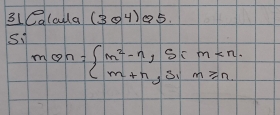 31 Calcula (3 ⊗ 4) ⊗ 5.
Si
m ⊗ n = { m² - n, Si m < n.
m + n, Si m ≥ n.